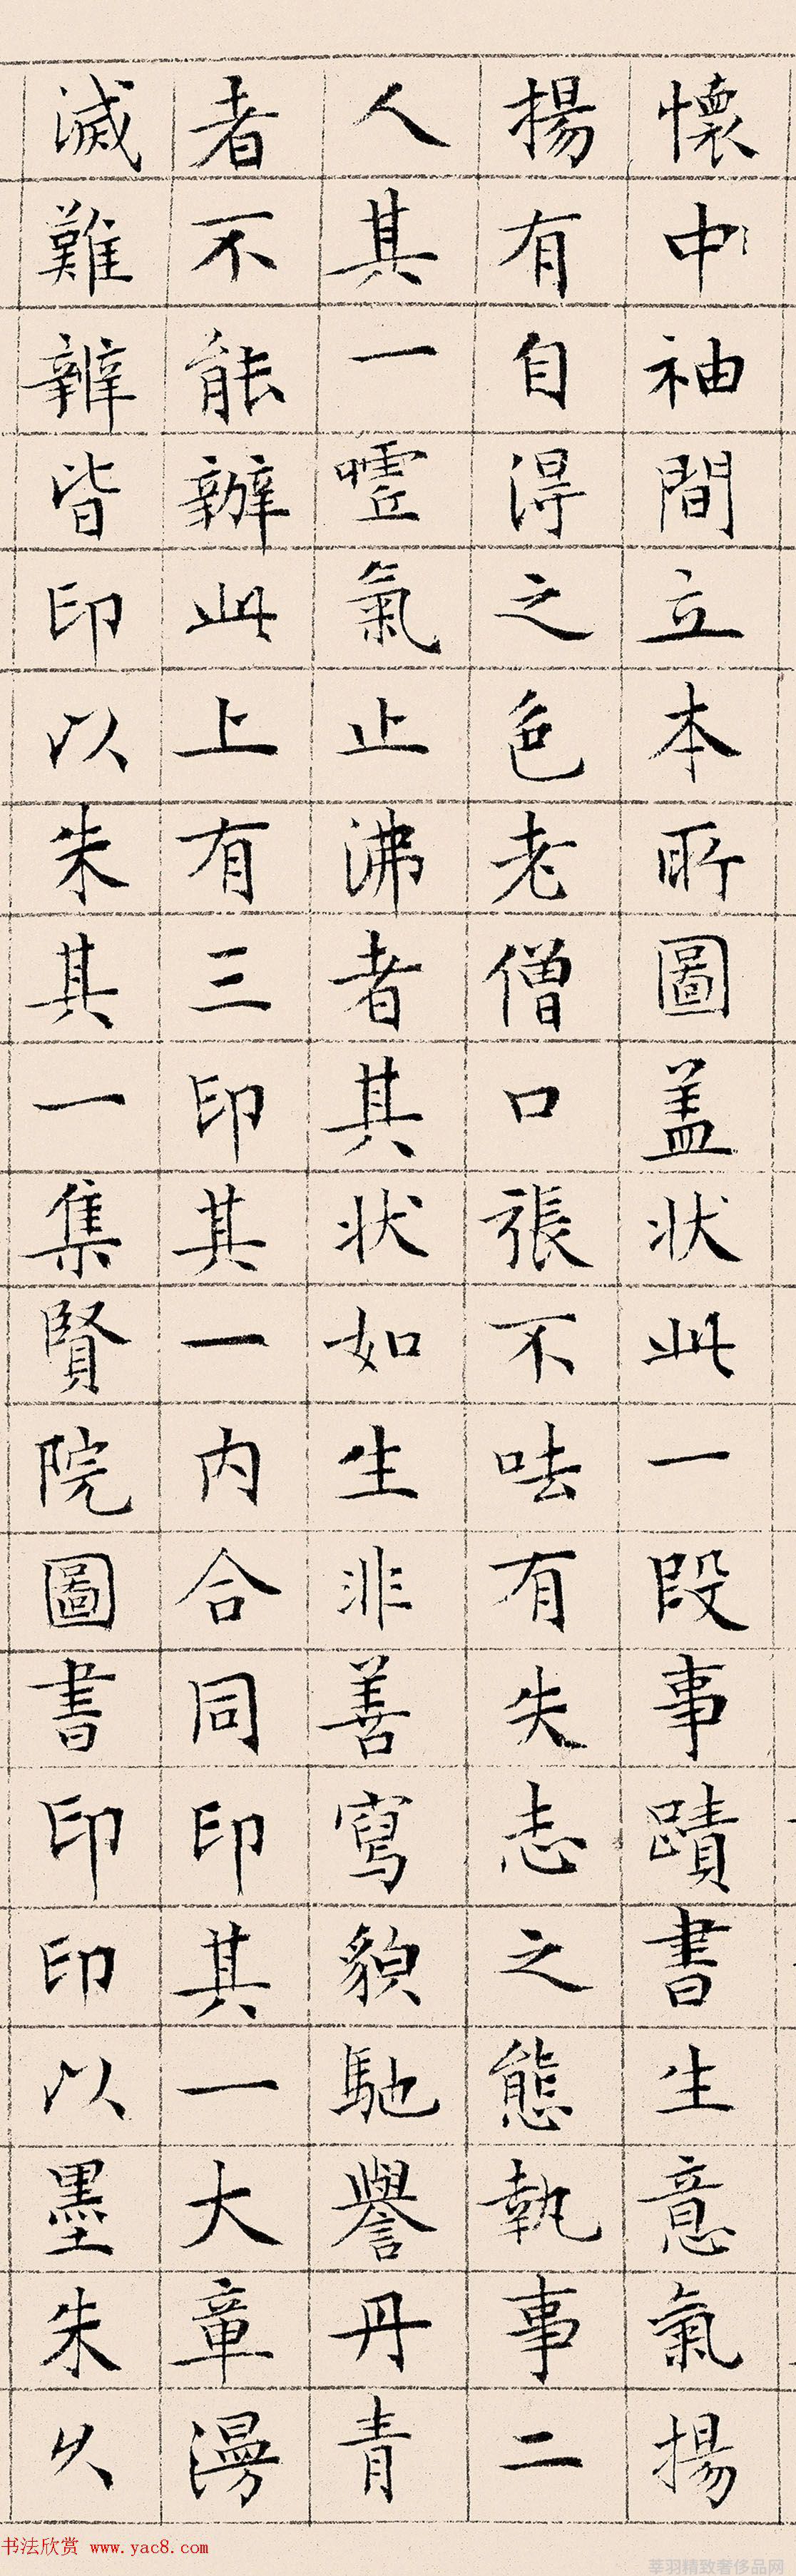 懷中袖間立本所圖盖状此一段事蹟書生意氣揚
揚有自得之色老僧口張不呿有失志之態執事二
人其一噓氣止沸者其状如生非善寫貌馳譽丹青
者不能辦此上有三印其一内合同印其一大章漫
滅難辨皆印以朱其一集賢院圖書印印以墨朱久
书法欣赏 www.yac8.com
莘羽精致奢侈品网